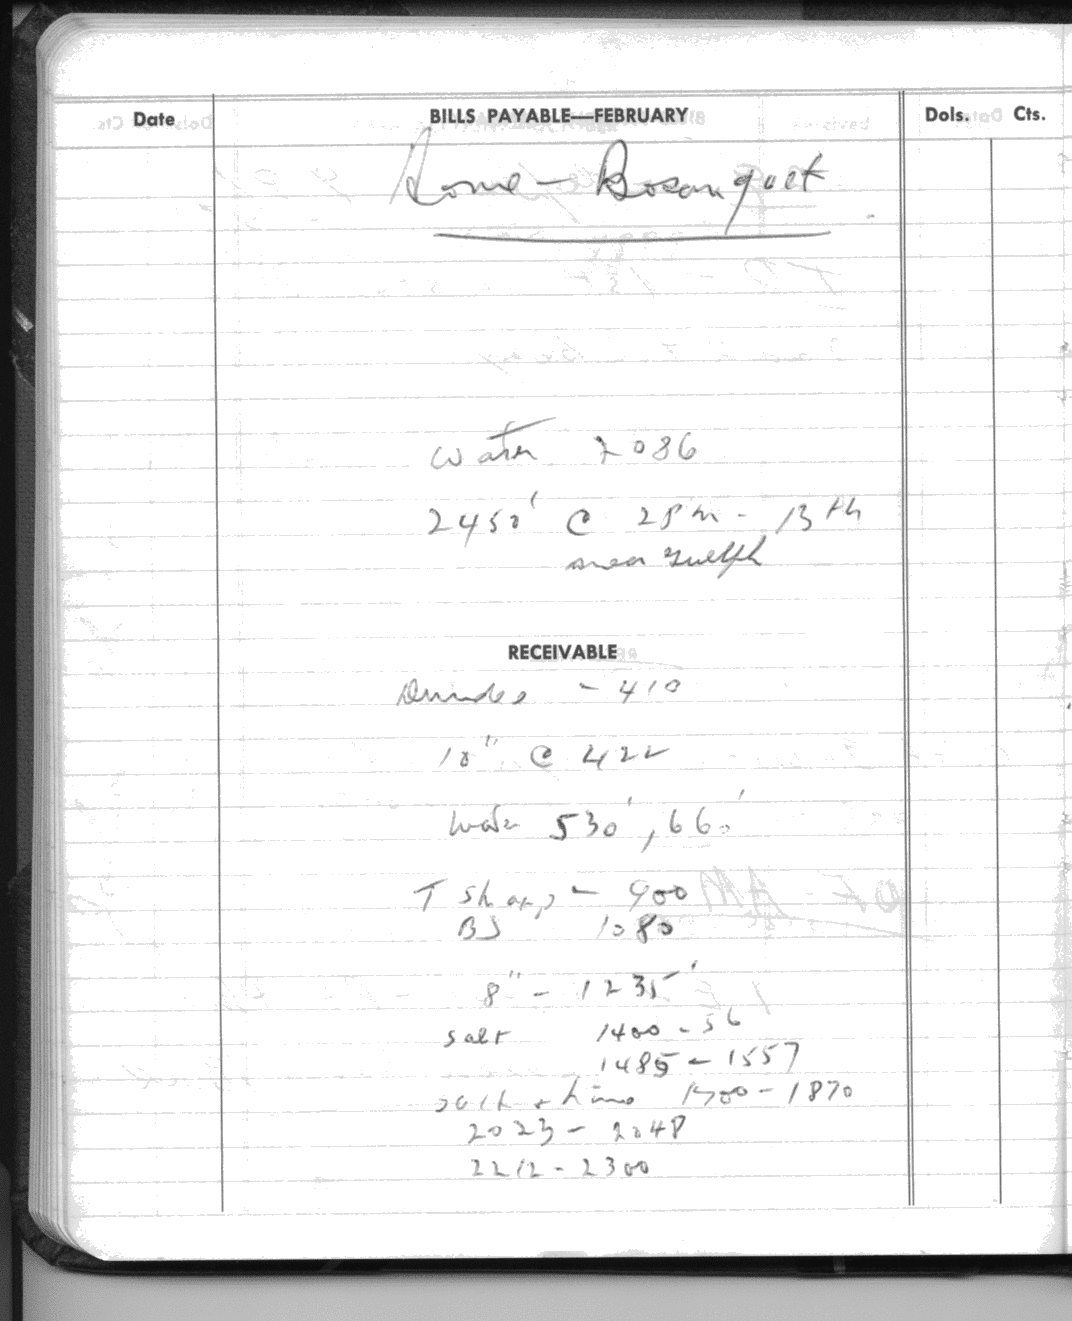 Date BILLS PAYABLE—FEBRUARY Dols. Cts.
Lome - Bosanquet
Water 2086
2450' @ 28 m - 13 th
near Guelph
RECEIVABLE
Dundee - 410
10" @ 422
Water 530', 660'
T Sharp - 900
BS 1080
8" - 1235'
salt 1400 - 56
1485 - 1557
salt + lime 1700 - 1870
2023 - 2048
2212 - 2300